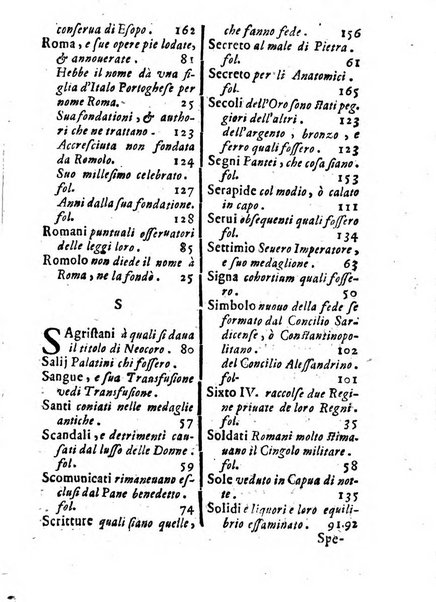 conserua di Esopo. 162
Roma, e sue opere pie lodate,
& annouerate. 81
Hebbe il nome dà una fi-
glia d'Italo Portoghese per
nome Roma. 25
Sua fondationi, & autho-
ri che ne trattano. 123
Accresciuta non fondata
da Romolo. 124
Suo millesimo celebrato.
fol. 127
Anni dalla sua fondatione.
fol. 128
Romani puntuali osseruatori
delle leggi loro. 85
Romolo non diede il nome à
Roma, ne la fondò. 25
S
SAgristani à quali si daua
il titolo di Neocoro. 80
Salij Palatini chi fossero.
Sangue, e sua Transfusione
vedi Transfusione.
Santi coniati nelle medaglie
antiche. 57
Scandali, e detrimenti cau-
sati dal lusso delle Donne.
fol. 59
Scomunicati rimaneuano es-
clusi dal Pane benedetto.
fol. 74
Scritture quali siano quelle,
che fanno fede. 156
Secreto al male di Pietra.
fol. 61
Secreto per li Anatomici.
fol. 165
Secoli dell'Oro sono stati peg-
giori dell'altri. 123
dell'argento, bronzo, e
ferro quali fossero.
Segni Pantei, che cosa siano.
fol. 153
Serapide col modio, ò calato
in capo. 111
Serui obsequenti quali fossero
fol. 134
Settimio Seuero Imperatore,
e suo medaglione. 63
Signa cohortium quali fosse-
ro. 50
Simbolo nuouo della fede se
formato dal Concilio Sar-
dicense, ò Constantinopo-
litano. 102
del Concilio Alessandrino.
fol- 101
Sixto IV. raccolse due Regi-
ne priuate de loro Regni.
fol. 35
Soldati Romani molto stima-
uano il Cingolo militare.
fol. 58
Sole veduto in Capua di not-
te. 135
Solidi e liquori e loro equili-
brio essaminato. 91.92
Spe-